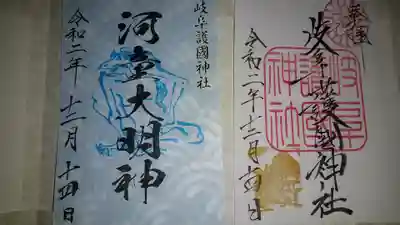 岐阜護國神社
河童大明神
令和二年 十二月 十四日
奉拝
岐阜護國神社
令和二年十二月十四日
岐阜
護國
神社